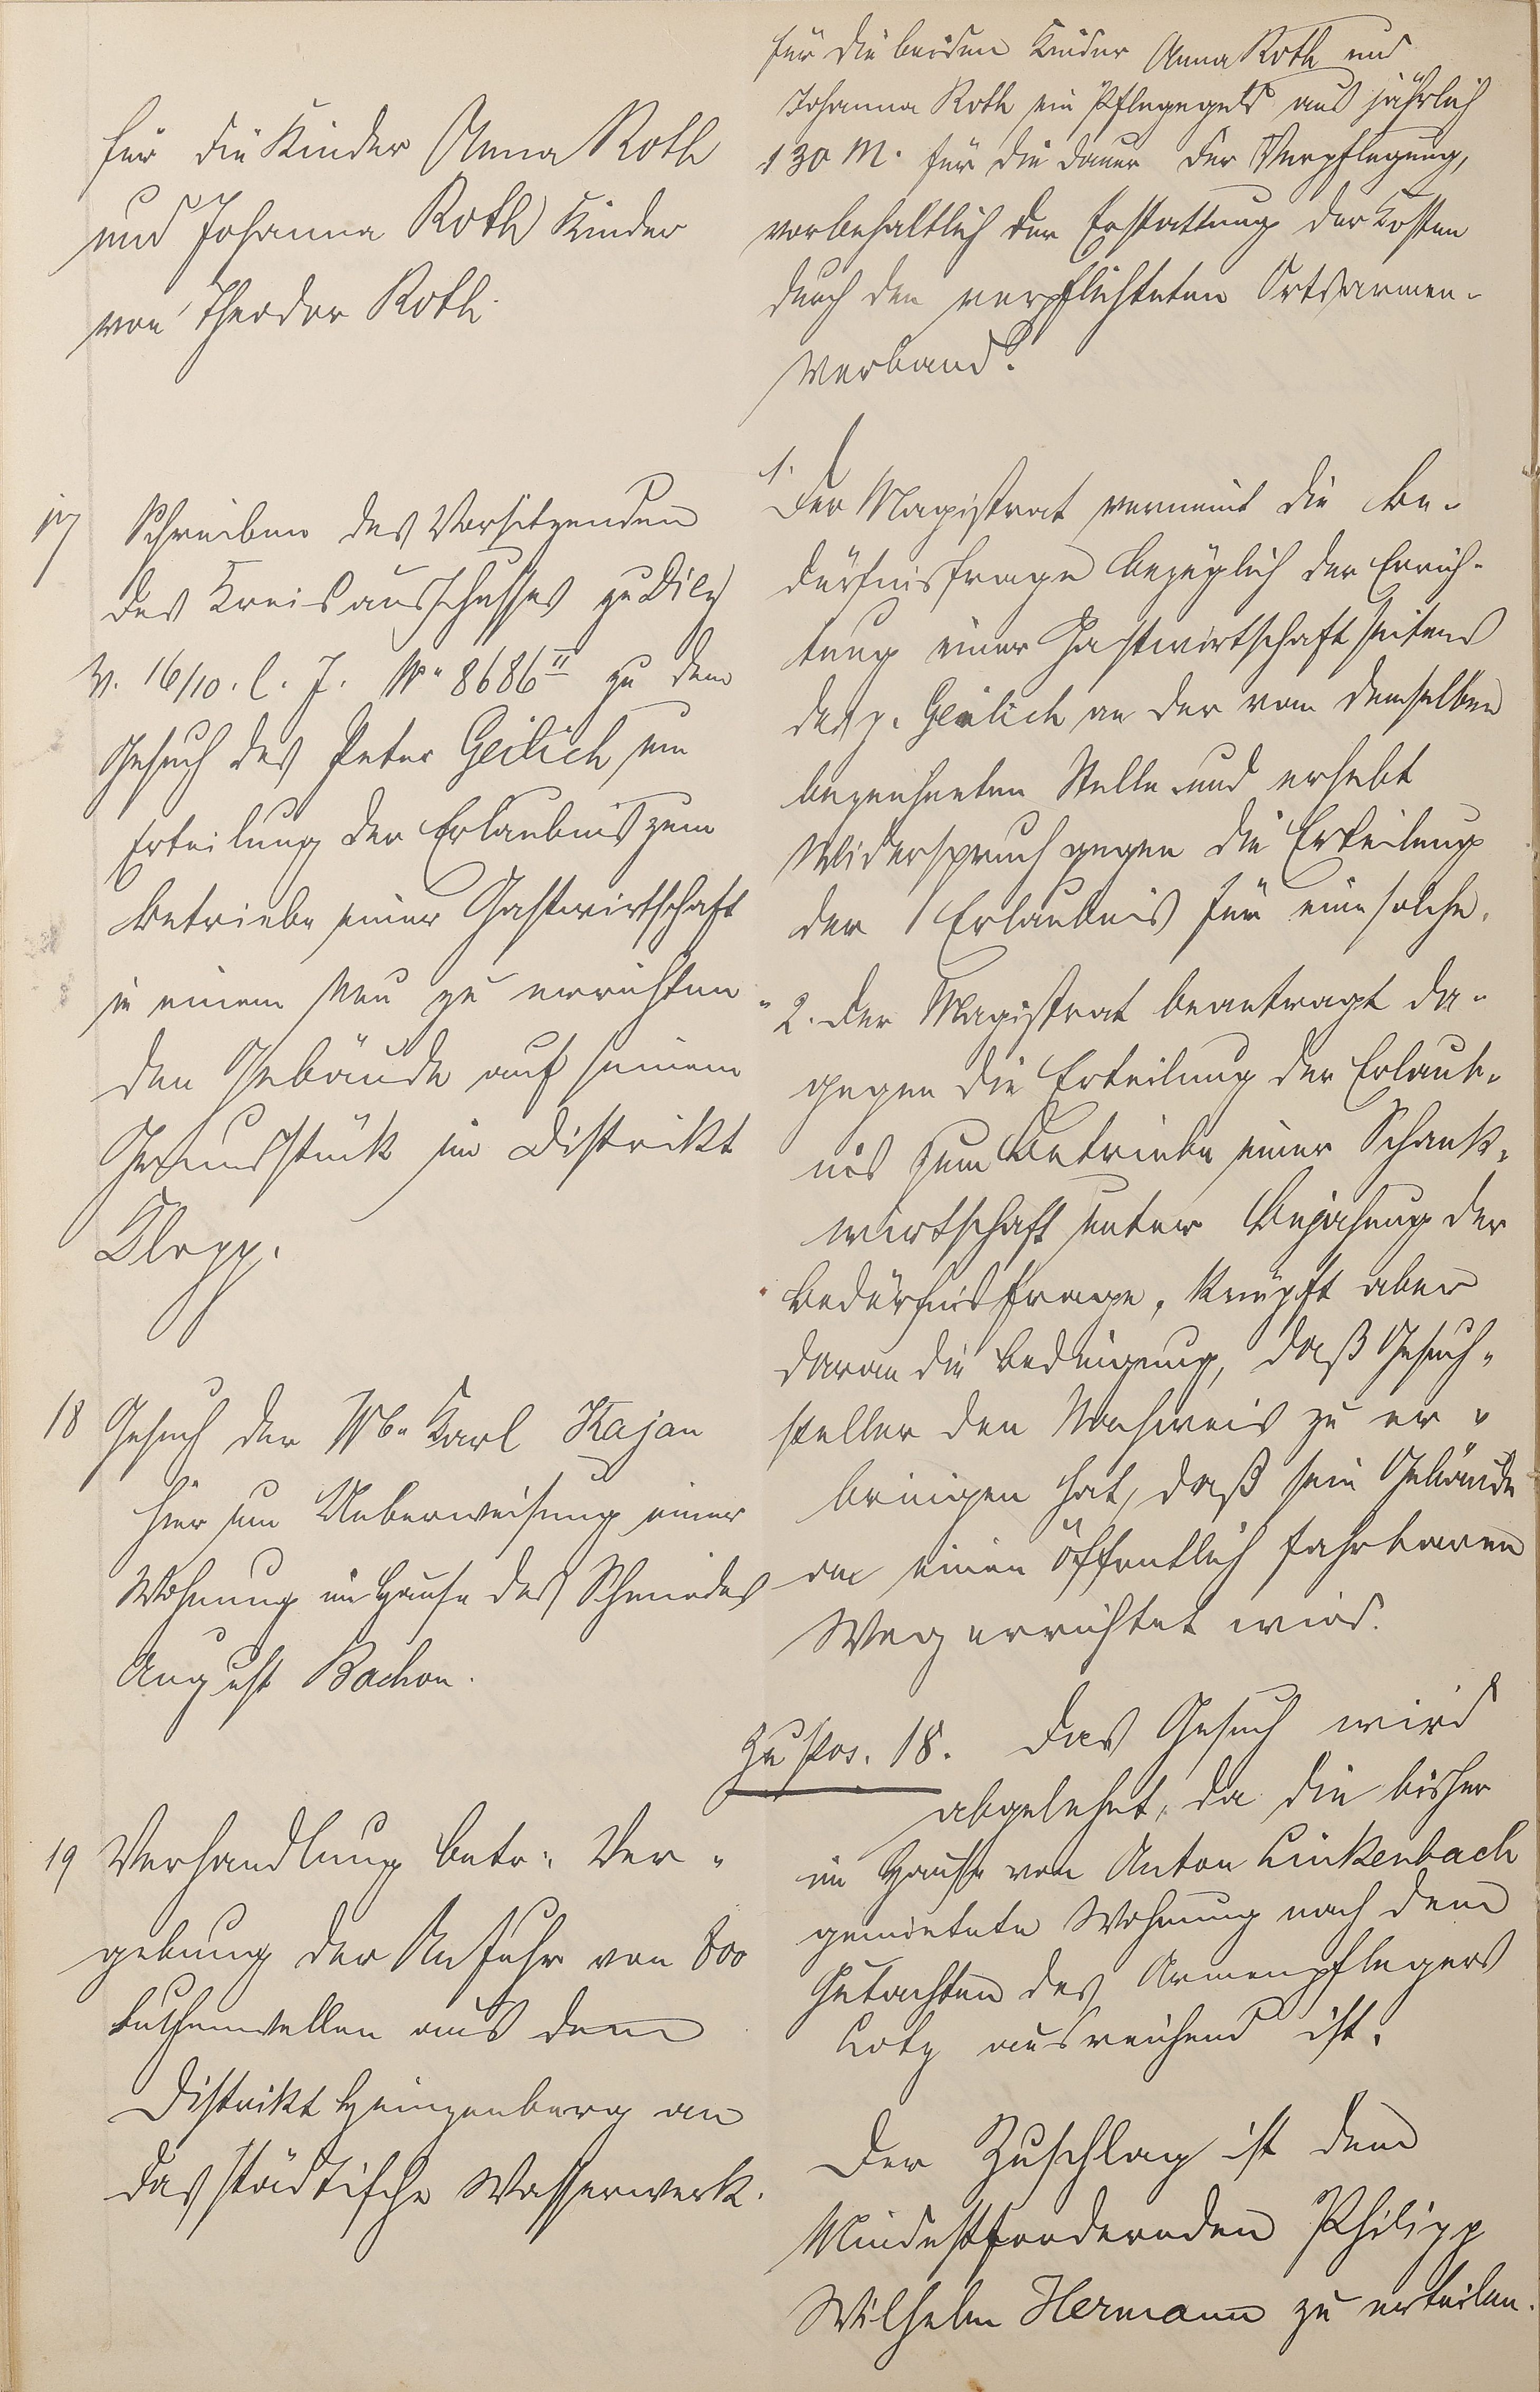 für die Kinder Anna Roth
und Johanna Roth Kinder
von Theodor Roth.
17 Schreiben des Vorsitzenden
des Kreisausschusses zu Diez
v. 16/10. l. J. No. 8686 II zu dem
Gesuch des Peter Geilich um
Erteilung der Erlaubnis zum
Betriebe einer Gastwirtschaft
in einem neu zu errichten-
den Gebäude auf seinem
Grundstück im Distrikt
Klopp.
18 Gesuch der Wb. Karl Kajan
hier um Ueberweisung einer
Wohnung im Hause des Schmiedes
August Bachon.
19 Verhandlung betr. Ver-
gebung der Anfuhr von 800
Buchenwellen aus dem
Distrikt Hingenberg an
das städtische Wasserwerk.
für die beiden Kinder Anna Roth und
Johanna Roth ein Pflegegeld aus jährlich
130 M. für die Dauer der Verpflegung,
vorbehaltlich der Erstattung der Kosten
durch den verpflichteten Ortsarmen-
verband.
1.
Der Magistrat verneint die Be-
dürfnisfrage bezüglich der Errich-
tung einer Gastwirtschaft seitens
des p. Geilich an der von demselben
bezeichneten Stelle und erhebt
Widerspruch gegen die Erteilung
der Erlaubnis für eine solche.
2. Der Magistrat beantragt da-
gegen die Erteilung der Erlaub-
nis zum Betriebe einer Schank-
wirtschaft unter Bejahung der
Bedürfnisfrage, knüpft aber
daran die Bedingung, daß Gesuch-
steller den Nachweis zu er-
bringen hat, daß sein Gebäude
an einen öffentlich fahrbaren
Weg errichtet wird.
Zu Pos. 18. Das Gesuch wird
abgelehnt, da die bisher
im Hause von Anton Linkenbach
gemietete Wohnung nach dem
Gutachten des Armenpflegers
Lotz ausreichend ist.
Der Zuschlag ist dem
Mindestfordernden Philipp
Wilhelm Hermann zu erteilen.